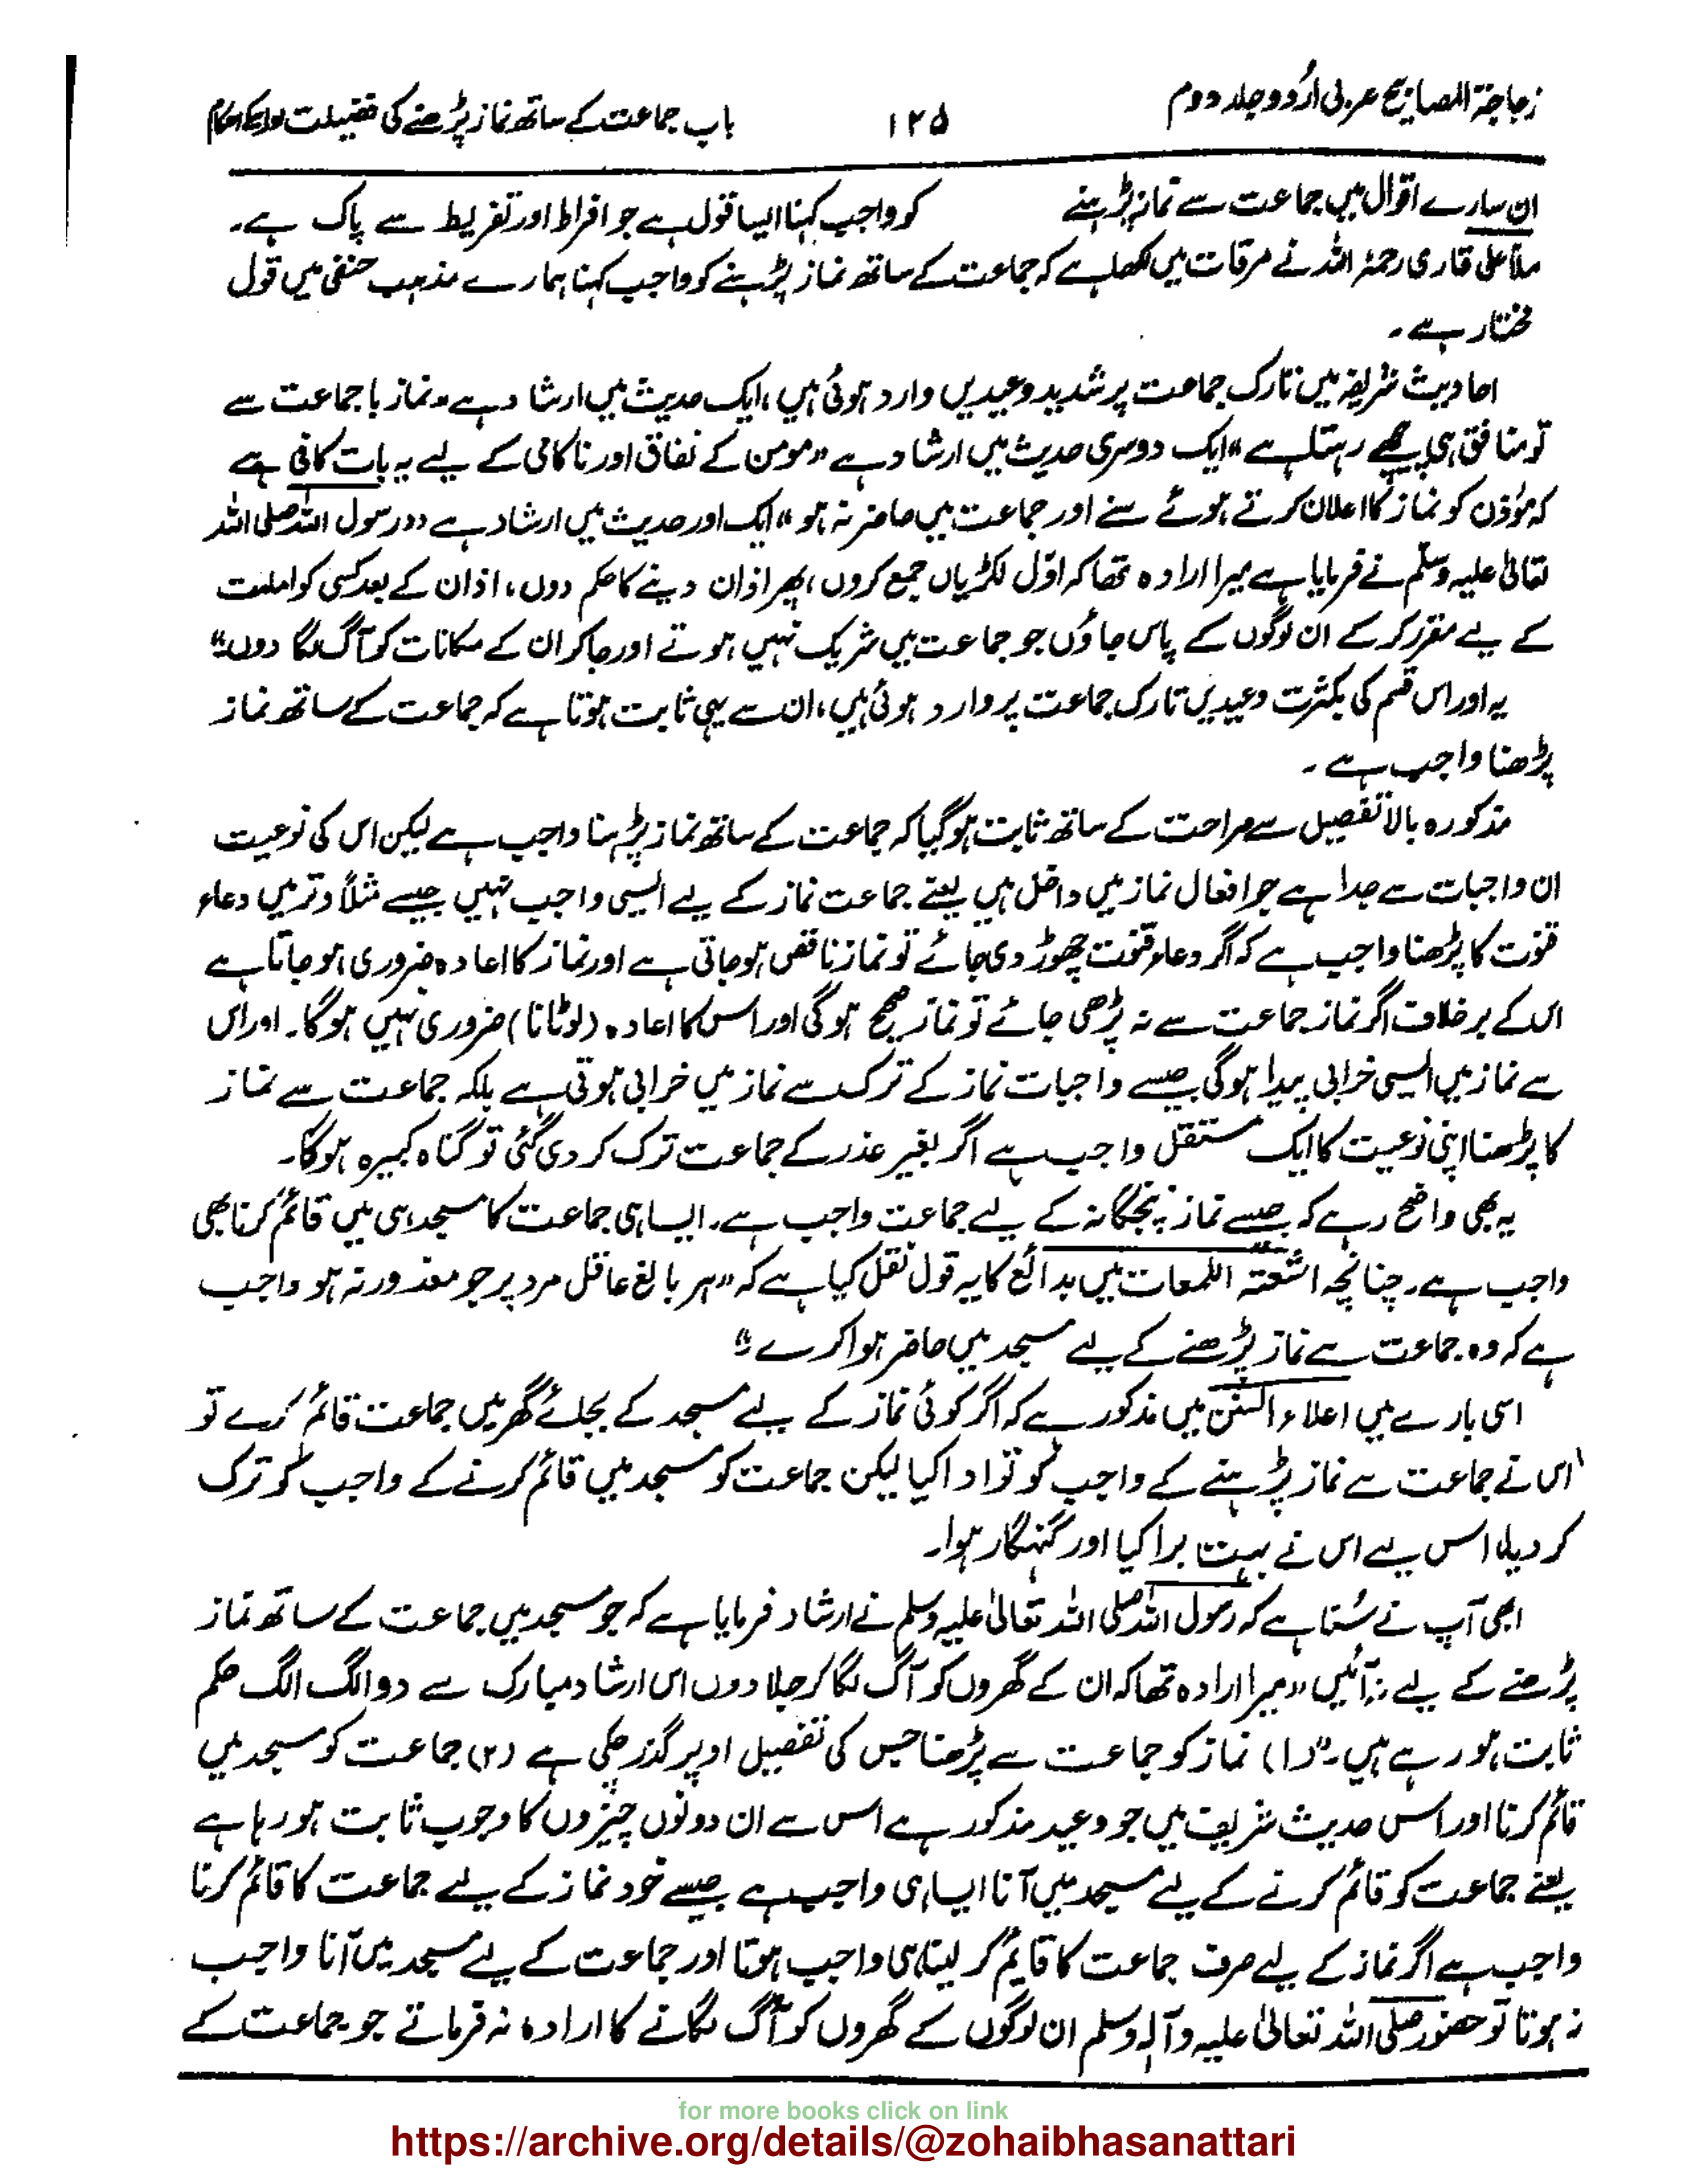 زجاجۃ المصابیح عربی اُردو جلد دوم ۱۲۵ باب جماعت کے ساتھ نماز پڑھنے کی فضیلت اور اسکے احکام
ان سارے اقوال میں جماعت سے نماز پڑہنے کو واجب کہنا ایسا قول ہے جو افراط اور تفریط سے پاک ہے۔
ملا علی قاری رحمۃ اللہ نے مرقات میں لکھا ہے کہ جماعت کے ساتھ نماز پڑہنے کو واجب کہنا ہمارے مذہب حنفی میں قول
مختار ہے۔
احادیث شریفہ میں تارک جماعت پر شدید وعیدیں وارد ہوئی ہیں، ایک حدیث میں ارشاد ہے «نماز با جماعت سے
تو منافق ہی پیچھے رہتا ہے» ایک دوسری حدیث میں ارشاد ہے «مومن کے نفاق اور ناکامی کے لیے یہ بات کافی ہے
کہ مؤذن کو نماز کا اعلان کرتے ہوئے سنے اور جماعت میں حاضر نہ ہو» ایک اور حدیث میں ارشاد ہے «رسول اللہ صلی اللہ
تعالیٰ علیہ وسلم نے فرمایا ہے میرا ارادہ تھا کہ اوّل لکڑیاں جمع کروں، پھر اذان دینے کا حکم دوں، اذان کے بعد کسی کو امامت
کے لیے مقرر کر کے ان لوگوں کے پاس جاؤں جو جماعت میں شریک نہیں ہوتے اور جا کر ان کے مکانات کو آگ لگا دوں»
یہ اور اس قسم کی بکثرت وعیدیں تارک جماعت پر وارد ہوئی ہیں، ان سے یہی ثابت ہوتا ہے کہ جماعت کے ساتھ نماز
پڑھنا واجب ہے۔
مذکورہ بالا تفصیل سے صراحت کے ساتھ ثابت ہو گیا کہ جماعت کے ساتھ نماز پڑہنا واجب ہے لیکن اس کی نوعیت
ان واجبات سے جدا ہے جو افعال نماز میں داخل ہیں یعنے جماعت نماز کے لیے ایسی واجب نہیں جیسے مثلاً وتر میں دعاء
قنوت کا پڑھنا واجب ہے کہ اگر دعاء قنوت چھوڑ دی جائے تو نماز ناقص ہو جاتی ہے اور نماز کا اعادہ ضروری ہو جاتا ہے
اس کے برخلاف اگر نماز جماعت سے نہ پڑھی جائے تو نماز صحیح ہو گی اور اس کا اعادہ (لوٹانا) ضروری نہیں ہو گا۔ اور اس
سے نماز میں ایسی خرابی پیدا ہو گی جیسے واجبات نماز کے ترک سے نماز میں خرابی ہوتی ہے بلکہ جماعت سے نماز
کا پڑھنا اپنی نوعیت کا ایک مستقل واجب ہے اگر بغیر عذر کے جماعت ترک کر دی گئی تو گناہ کبیرہ ہو گا۔
یہ بھی واضح رہے کہ جیسے نماز پنجگانہ کے لیے جماعت واجب ہے۔ ایسا ہی جماعت کا مسجد ہی میں قائم کرنا بھی
واجب ہے۔ چنانچہ اشعۃ اللمعات میں بدائع کا یہ قول نقل کیا ہے کہ «ہر بالغ عاقل مرد پر جو معذور نہ ہو واجب
ہے کہ وہ جماعت سے نماز پڑھنے کے لیے مسجد میں حاضر ہوا کرے»
اسی بارے میں اعلاء السنن میں مذکور ہے کہ اگر کوئی نماز کے لیے مسجد کے بجائے گھر میں جماعت قائم کرے تو
اس نے جماعت سے نماز پڑہنے کے واجب کو تو ادا کیا لیکن جماعت کو مسجد میں قائم کرنے کے واجب کو ترک
کر دیا، اس لیے اس نے بہت برا کیا اور گنہگار ہوا۔
ابھی آپ نے سُنا ہے کہ رسول اللہ صلی اللہ تعالیٰ علیہ وسلم نے ارشاد فرمایا ہے کہ جو مسجد میں جماعت کے ساتھ نماز
پڑھنے کے لیے نہ آئیں «میرا ارادہ تھا کہ ان کے گھروں کو آگ لگا کر جلا دوں اس ارشاد مبارک سے دو الگ الگ حکم
ثابت ہو رہے ہیں۔» (۱) نماز کو جماعت سے پڑھنا جس کی تفصیل اوپر گذر چکی ہے (۲) جماعت کو مسجد میں
قائم کرنا اور اس حدیث شریف میں جو وعید مذکور ہے اس سے ان دونوں چیزوں کا وجوب ثابت ہو رہا ہے
یعنے جماعت کو قائم کرنے کے لیے مسجد میں آنا ایسا ہی واجب ہے جیسے خود نماز کے لیے جماعت کا قائم کرنا
واجب ہے اگر نماز کے لیے صرف جماعت کا قایم کر لینا ہی واجب ہوتا اور جماعت کے لیے مسجد میں آنا واجب
نہ ہوتا تو حضور صلی اللہ تعالیٰ علیہ وآلہٖ وسلم ان لوگوں کے گھروں کو آگ لگانے کا ارادہ نہ فرماتے جو جماعت کے
for more books click on link
https://archive.org/details/@zohaibhasanattari